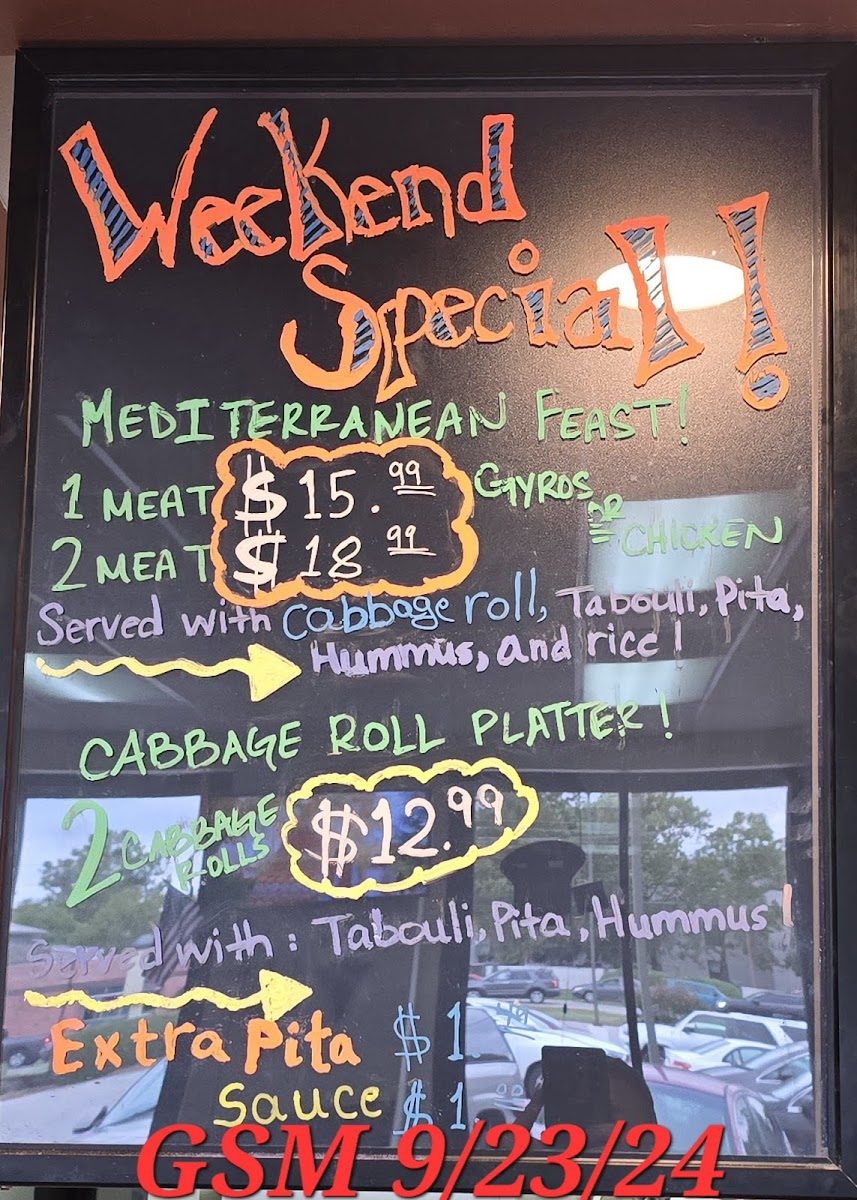 Weekend
Special!
MEDITERRANEAN FEAST!
1 MEAT $15.99 GYROS
OR
2 MEAT $18 99 CHICKEN
Served with cabbage roll, Tabouli, Pita,
Hummus, and rice!
CABBAGE ROLL PLATTER!
2 CABBAGE ROLLS $12.99
Served with: Tabouli, Pita, Hummus!
Extra Pita $1.
Sauce $1
GSM 9/23/24